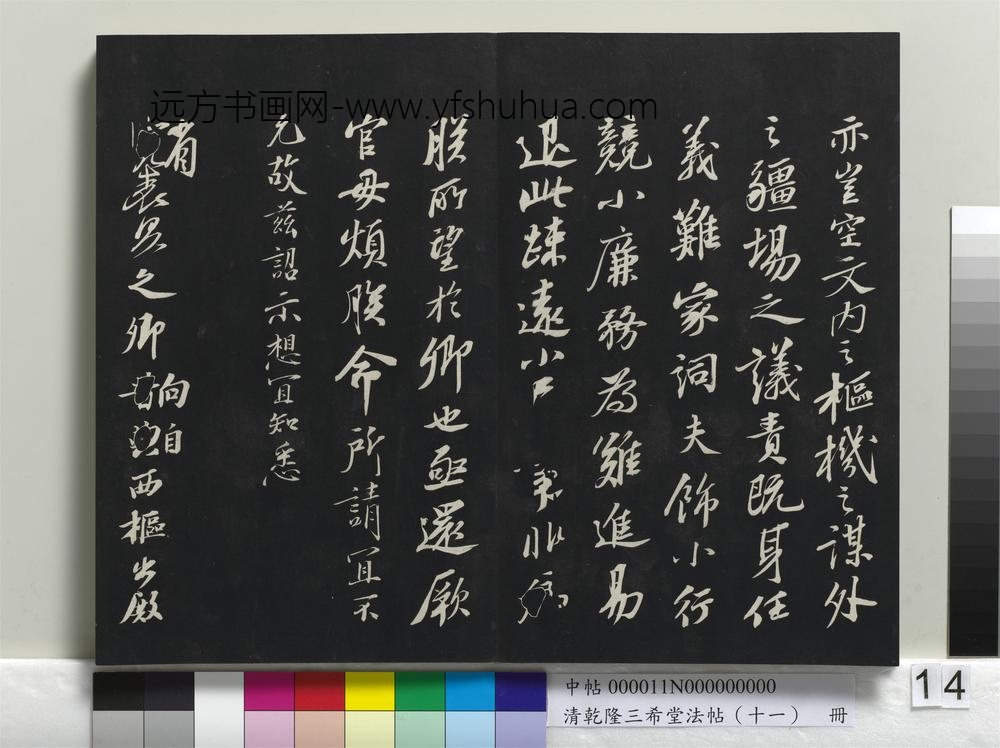 亦豈空文内之樞機之謀外
之疆場之議責既身任
義難家詞夫飾小行
競小廉務為難進易
退此疎遠小
朕所望於卿也亟還厥
官毋煩朕命所請宜不
允故茲詔示想宜知悉
省表具之卿向自西樞出殿
远方书画网-www.yfshuhua.com
中帖 000011N000000000
清乾隆三希堂法帖（十一） 冊
14